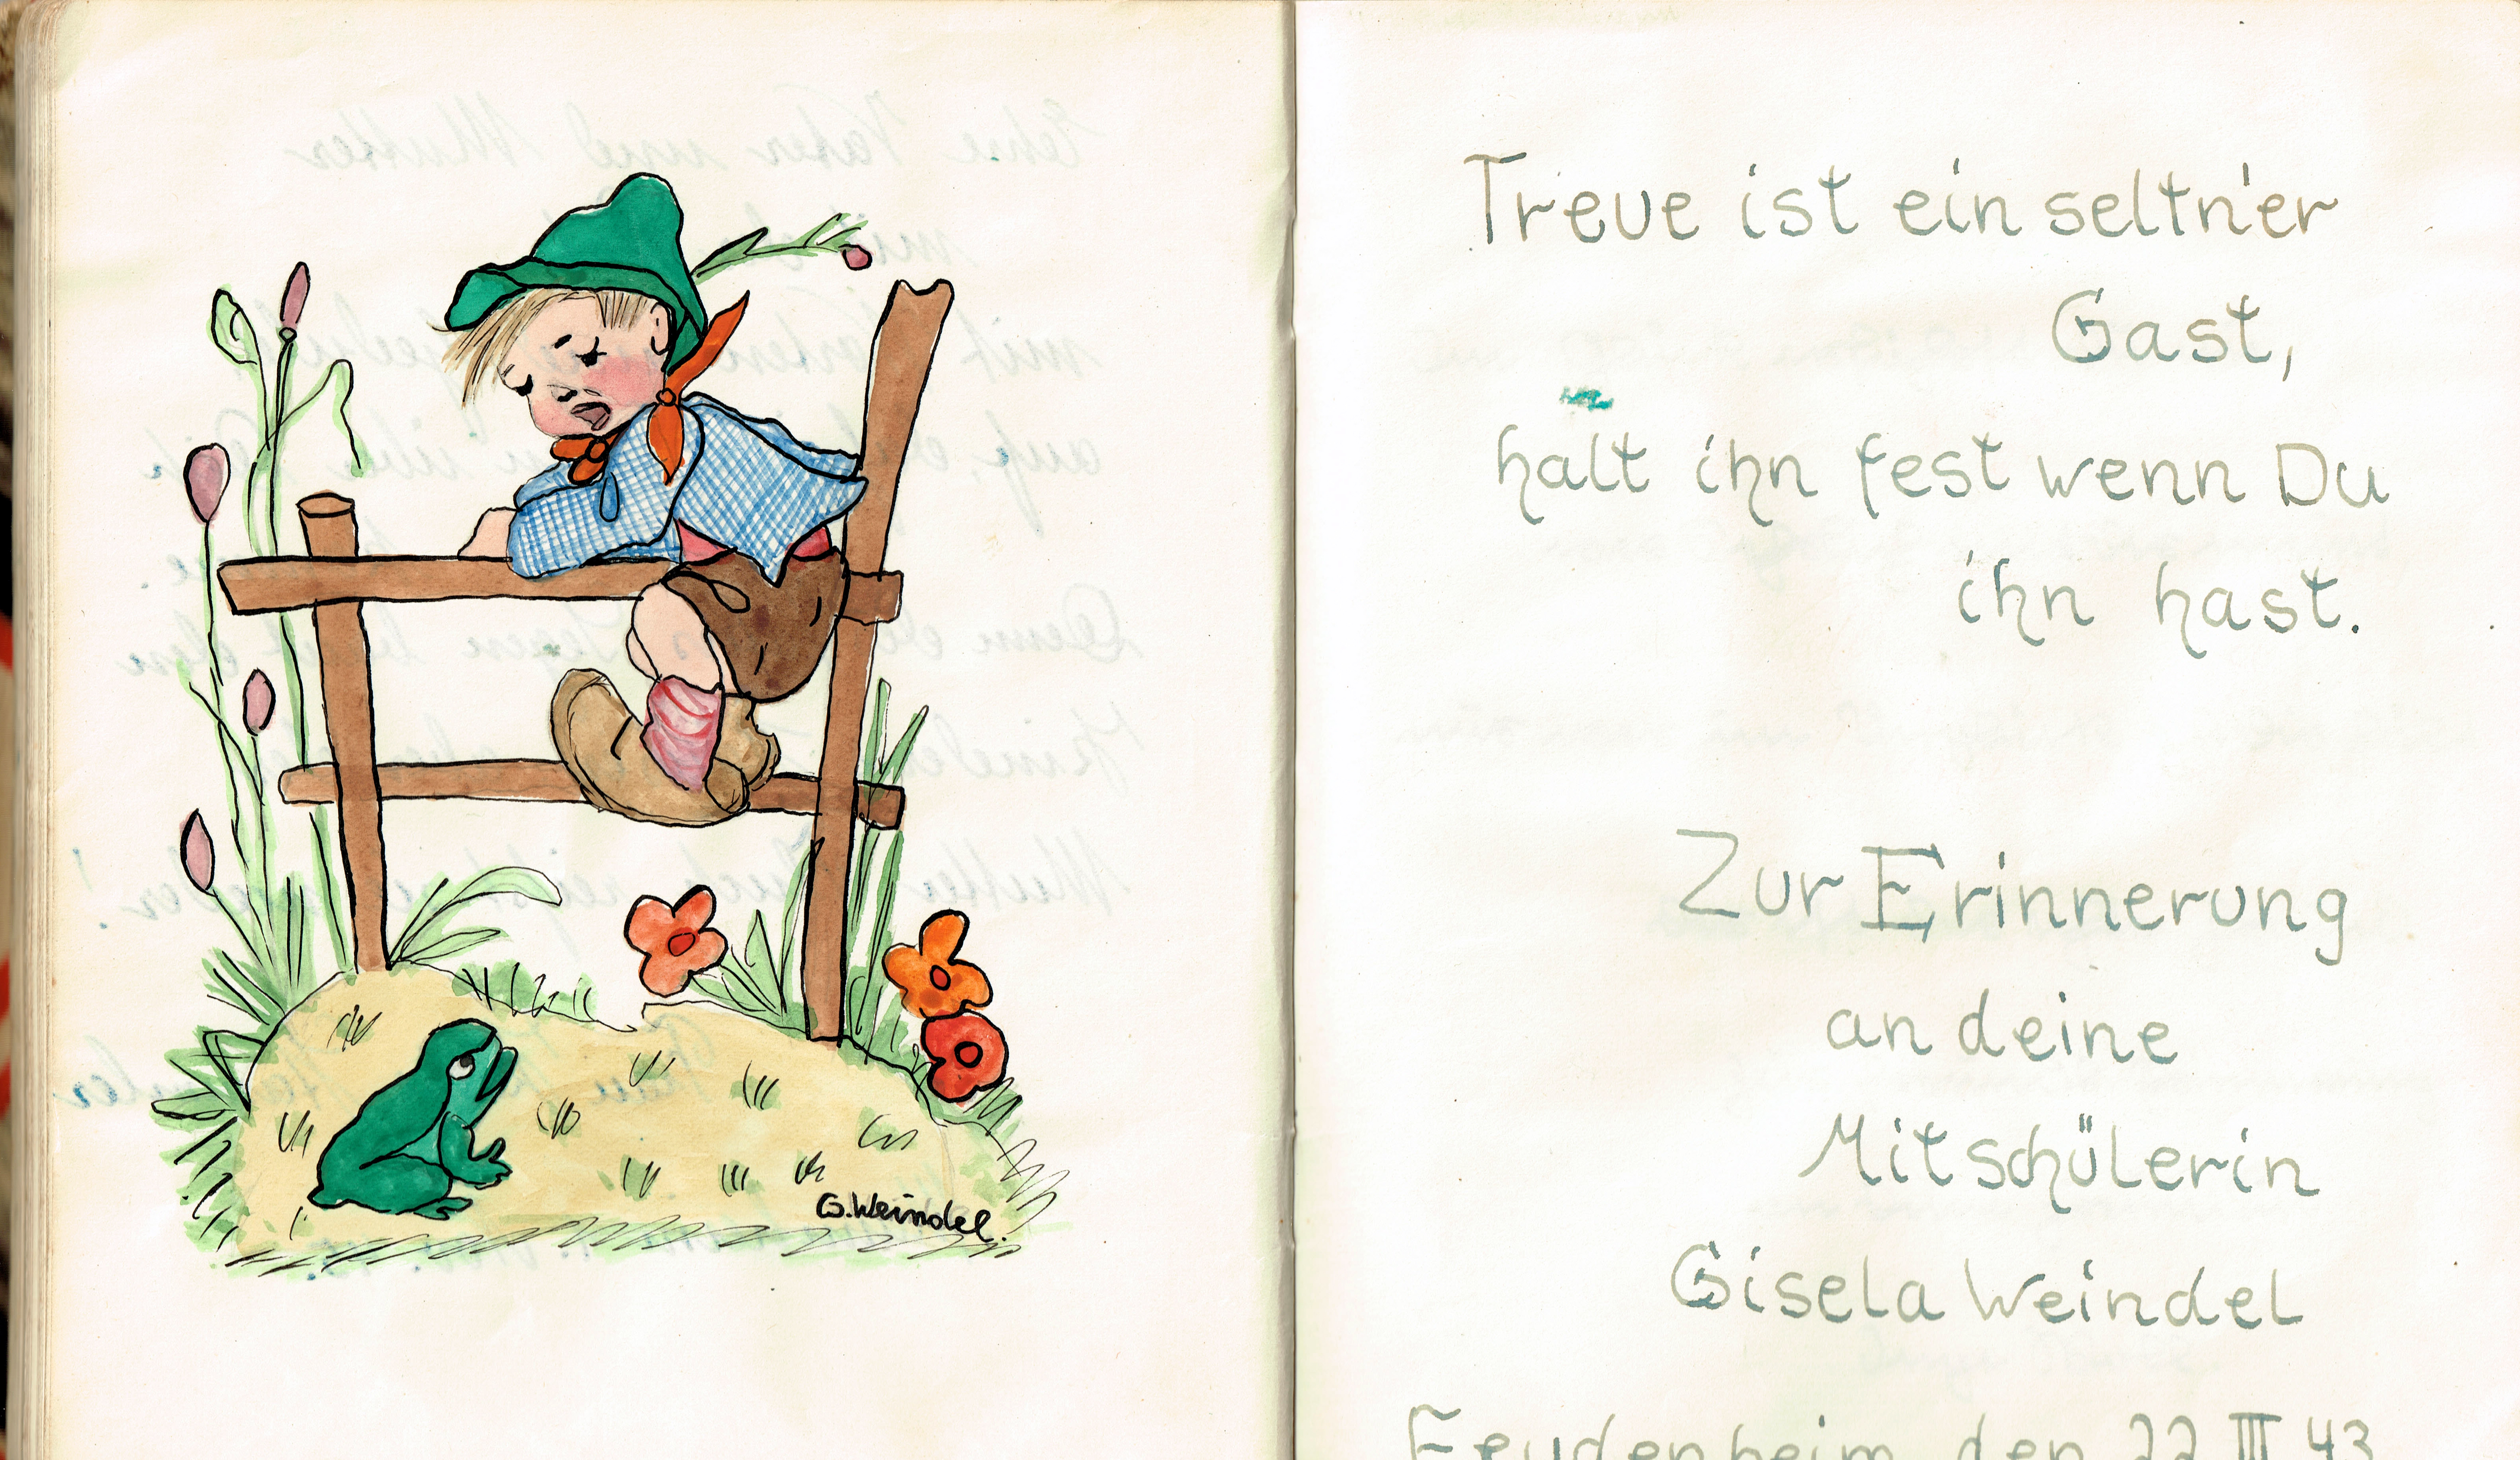 G. Weindel.
Treue ist ein seltn'er
Gast,
halt ihn fest wenn Du
ihn hast.
Zur Erinnerung
an deine
Mitschülerin
Gisela Weindel
Feudenheim, den 22 III 43